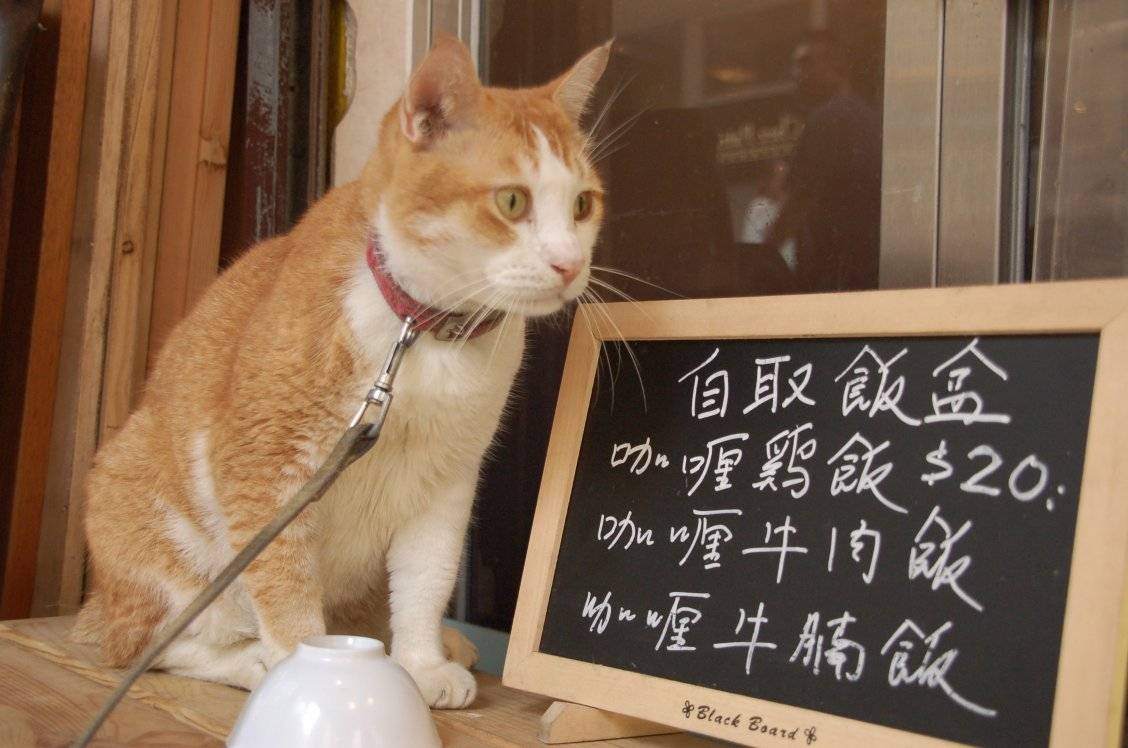 自取飯盒
咖喱鷄飯 $20.
咖喱牛肉飯
咖喱牛腩飯
Black Board